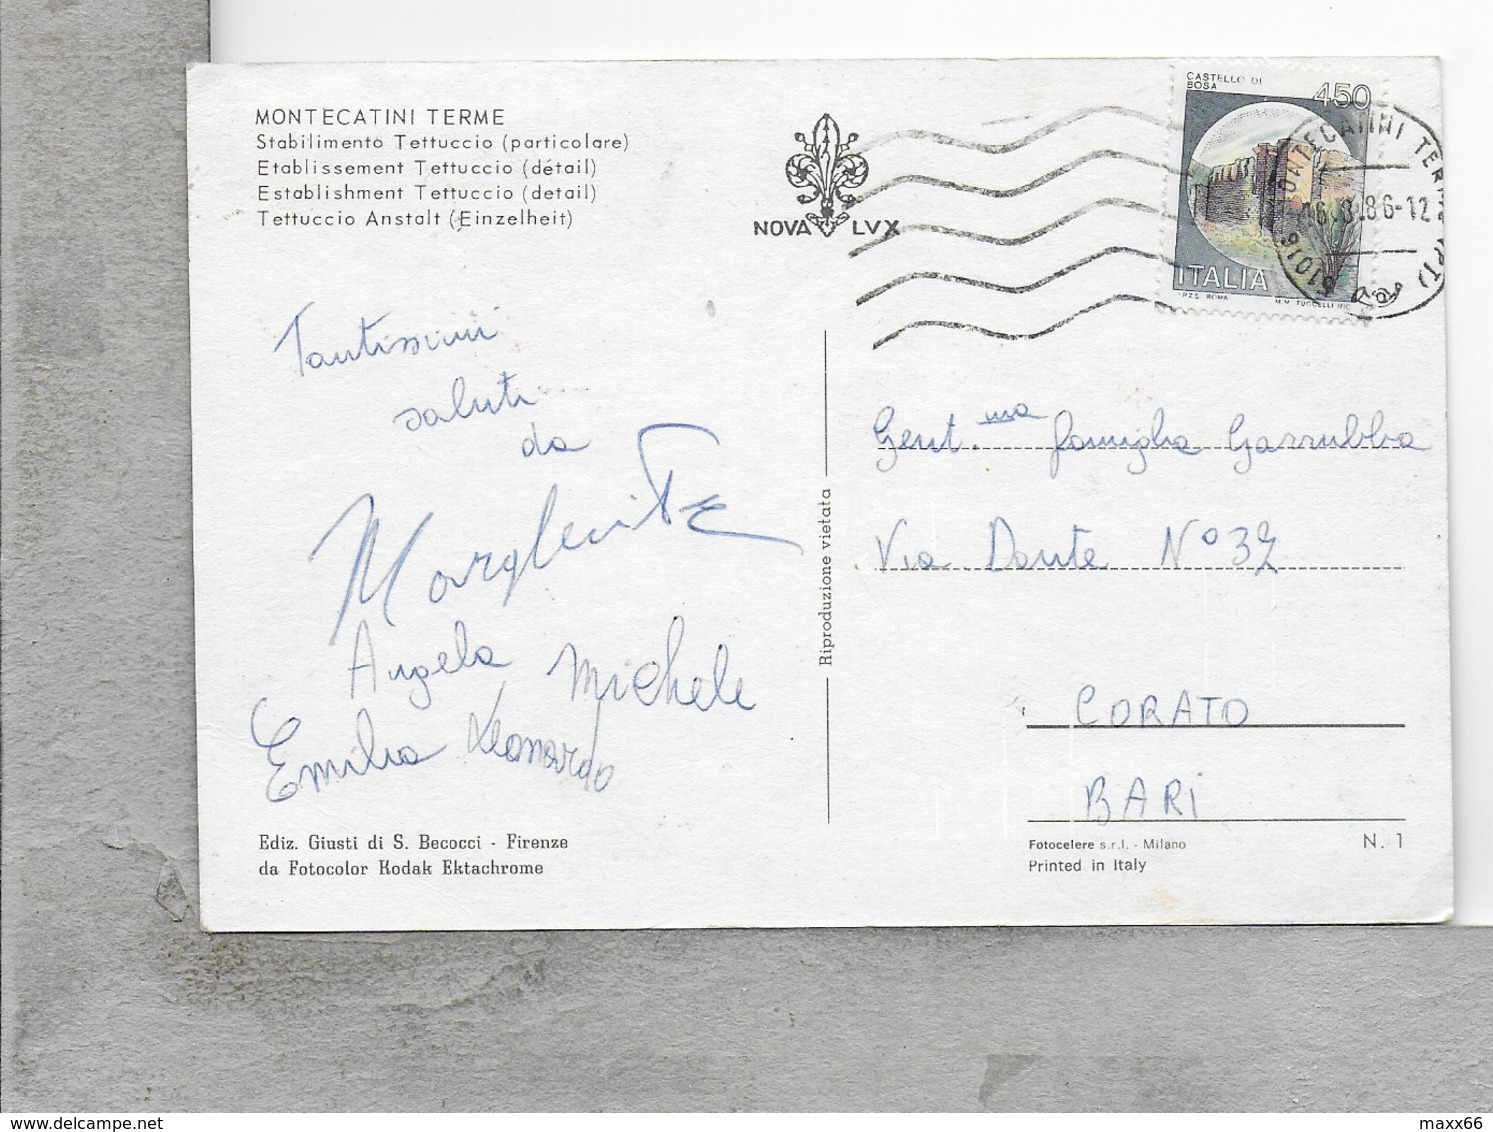 MONTECATINI TERME
Stabilimento Tettuccio (particolare)
Etablissement Tettuccio (détail)
Establishment Tettuccio (detail)
Tettuccio Anstalt (Einzelheit)
NOVA LVX
CASTELLO DI
BOSA
450
ITALIA
I.P.Z.S. ROMA
MONTECATINI TERME (PT)
8.86-12
51016
Tantissimi
saluti
da
Margherita
Angela Michele
Emilia Leonardo
Ediz. Giusti di S. Becocci - Firenze
da Fotocolor Kodak Ektachrome
Riproduzione vietata
Gent.ma famiglia Garrubba
Via Dante N° 32
CORATO
BARI
Fotocelere s.r.l. - Milano
Printed in Italy
N. 1
maxx66